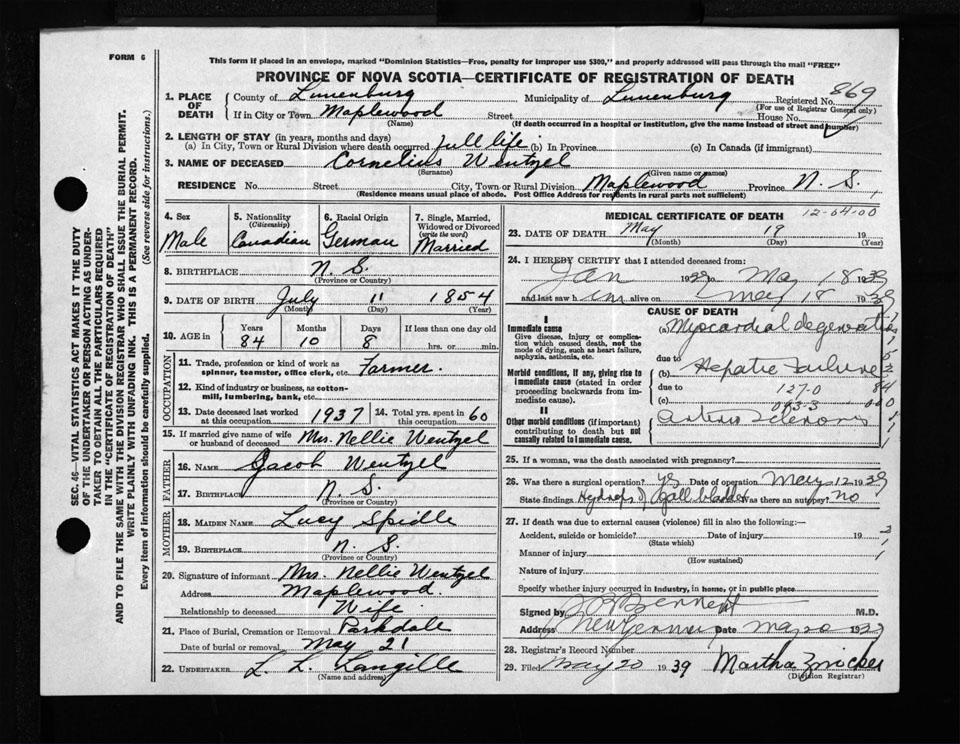 FORM 6
This form if placed in an envelope, marked "Dominion Statistics—Free, penalty for improper use $300," and properly addressed will pass through the mail "FREE"
PROVINCE OF NOVA SCOTIA—CERTIFICATE OF REGISTRATION OF DEATH
869
1. PLACE OF DEATH County of Lunenburg Municipality of Lunenburg Registered No.
(For use of Registrar General only)
If in City or Town Maplewood Street House No.
(Name) (If death occurred in a hospital or institution, give the name instead of street and number)
2. LENGTH OF STAY (in years, months and days)
(a) In City, Town or Rural Division where death occurred full life (b) In Province (c) In Canada (if immigrant)
3. NAME OF DECEASED Cornelius Wentzel
(Surname) (Given name or names)
RESIDENCE No. Street City, Town or Rural Division Maplewood Province N. S.
(Residence means usual place of abode. Post Office Address for residents in rural parts not sufficient) 1
4. Sex Male
5. Nationality (Citizenship) Canadian
6. Racial Origin German
7. Single, Married, Widowed or Divorced (write the word) Married
8. BIRTHPLACE N. S.
(Province or Country)
9. DATE OF BIRTH July 11 1854
(Month) (Day) (Year)
10. AGE in Years Months Days If less than one day old
84 10 8 hrs. or min.
OCCUPATION
11. Trade, profession or kind of work as spinner, teamster, office clerk, etc. Farmer.
12. Kind of industry or business, as cotton-mill, lumbering, bank, etc.
13. Date deceased last worked at this occupation 1937 14. Total yrs. spent in this occupation 60
15. If married give name of wife or husband of deceased Mrs. Nellie Wentzel
FATHER
16. NAME Jacob Wentzel
17. BIRTHPLACE N. S.
(Province or Country)
MOTHER
18. MAIDEN NAME Lucy Spidle
19. BIRTHPLACE N. S.
(Province or Country)
20. Signature of informant Mrs. Nellie Wentzel
Address Maplewood.
Relationship to deceased Wife
21. Place of Burial, Cremation or Removal Parkdale
Date of burial or removal May 21
22. UNDERTAKER L. L. Langille
(Name and address)
MEDICAL CERTIFICATE OF DEATH 12-04-00
23. DATE OF DEATH May 19 19
(Month) (Day) (Year)
24. I HEREBY CERTIFY that I attended deceased from:
Jan 1939 to May 18 1939
and last saw h im alive on May 18 1939
CAUSE OF DEATH
I
Immediate cause
Give disease, injury or complication which caused death, not the mode of dying, such as heart failure, asphyxia, asthenia, etc.
(a) Myocardial degeneration
due to
Morbid conditions, if any, giving rise to immediate cause (stated in order proceeding backwards from immediate cause).
(b) Hepatic Failure
due to 127-0 84
(c) 093-3
II
Other morbid conditions (if important) contributing to death but not causally related to immediate cause.
Arterio Sclerosis
25. If a woman, was the death associated with pregnancy?
26. Was there surgical operation? yes Date of operation May 12 1939
State findings Hydrops of Gall bladder Was there an autopsy? no
27. If death was due to external causes (violence) fill in also the following:—
Accident, suicide or homicide? Date of injury 19
(State which)
Manner of injury
(How sustained)
Nature of injury
Specify whether injury occurred in industry, in home, or in public place
Signed by Bennett M.D.
Address New Germany Date May 20 1939
28. Registrar's Record Number
29. Filed May 20 1939 Martha Zwicker
(Division Registrar)
SEC. 46—VITAL STATISTICS ACT MAKES IT THE DUTY
OF THE UNDERTAKER OR PERSON ACTING AS UNDER-
TAKER TO OBTAIN ALL THE PARTICULARS REQUIRED
IN THE "CERTIFICATE OF REGISTRATION OF DEATH"
AND TO FILE THE SAME WITH THE DIVISION REGISTRAR WHO SHALL ISSUE THE BURIAL PERMIT.
WRITE PLAINLY WITH UNFADING INK. THIS IS A PERMANENT RECORD.
Every item of information should be carefully supplied. (See reverse side for instructions.)